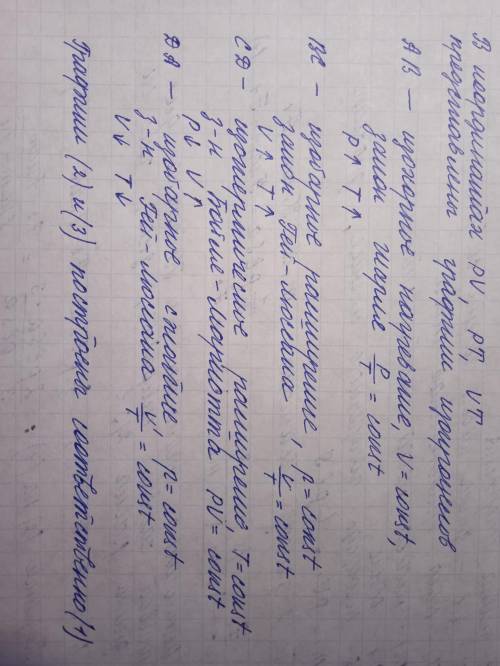 В координатах pV, pT, VT
представим графики изопроцессов
AB — изохорное нагревание, V = const,
закон Шарля p/T = const
p↑ T↑
BC — изобарное расширение, p = const
закон Гей-Люссака, V/T = const
V↑ T↑
CD — изотермическое расширение, T = const
з-н Бойля-Мариотта pV = const
p↓ V↑
DA — изобарное сжатие, p = const
з-н Гей-Люссака V/T = const
V↓ T↓
Графики (2) и (3) построены соответственно (1)